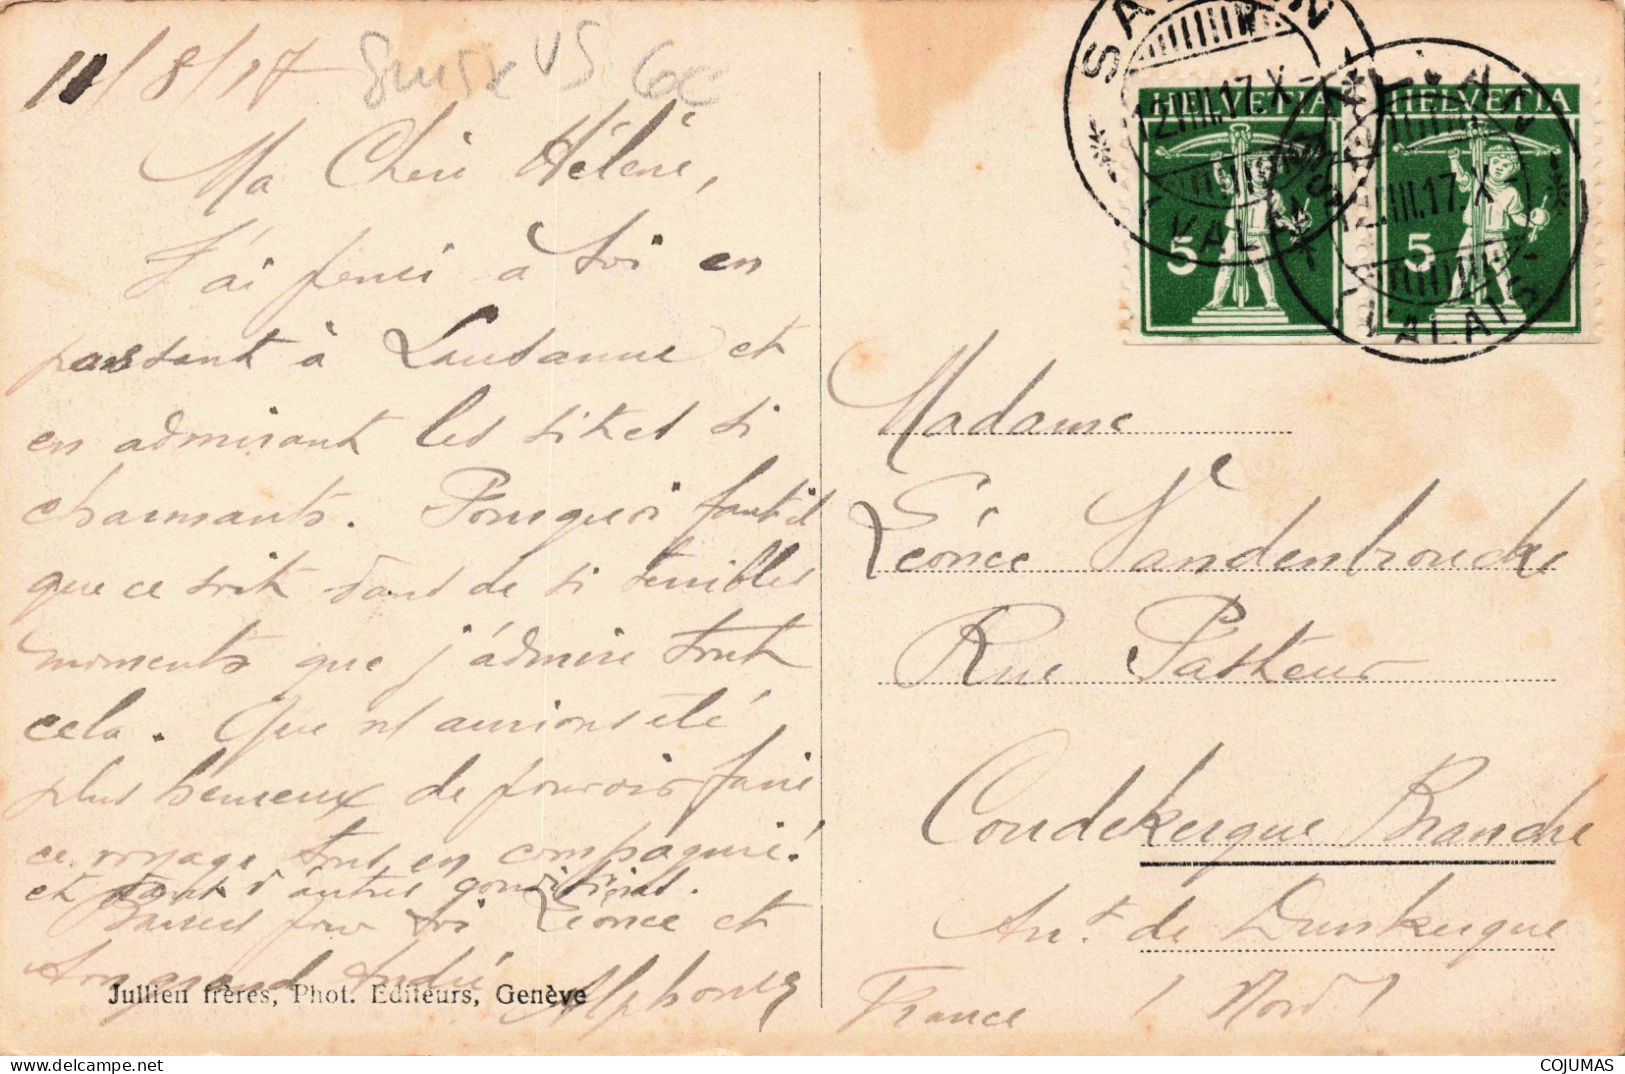 11/8/17
Suisse VS 6c
Ma Chère Hélène,
J'ai pensé à toi en
passant à Lausanne et
en admirant les sites si
charmants. Pourquoi faut il
que ce soit dans de si terribles
moments que j'admire tout
cela. Que ns aurions été
plus heureux de pouvoir faire
ce voyage tous en compagnie.
et dans d'autres conditions.
Baisers pour toi Léonce et
ton grand André Alphonse
Jullien frères, Phot. Editeurs, Genève
SAXON
12.VIII.17.X-
(VALAIS)
HELVETIA
5
HELVETIA
5
12.VIII.17.X-
(VALAIS)
Madame
Léonce Vandenbroucke
Rue Pasteur
Coudekerque Branche
Arrt. de Dunkerque
France (Nord)
COJUMAS